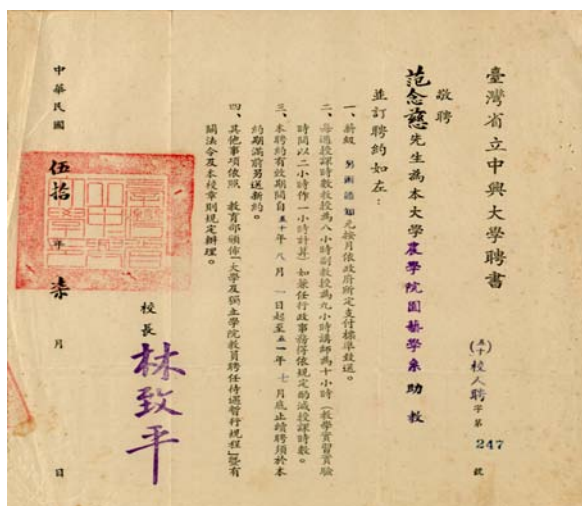 臺灣省立中興大學聘書
(五十)校人聘字第247號
敬聘
范念慈先生為本大學農學院園藝學系助教
並訂聘約如左：
一、薪級 另函通知元按月依政府所定支付標準致送。
二、每週授課時數教授為八小時副教授為九小時講師為十小時（教學實習實驗
時間以二小時作一小時計算）如兼任行政事務得依規定酌減授課時數。
三、本聘約有效期間自五十年八月一日起至五一年七月底止續聘須於本
約期滿前另送新約。
四、其他事項依照 教育部頒佈「大學及獨立學院教員聘任待遇暫行規程」暨有
關法令及本校章則規定辦理。
校長 林致平
中華民國伍拾年柒月 日